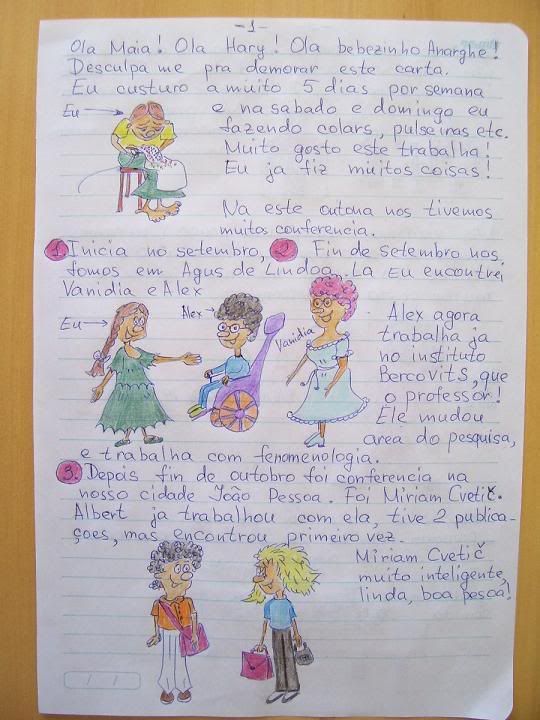 -1-
Ola Maia! Ola Hary! Ola bebezinho Anarghe!
Desculpa me pra demorar este carta.
Eu custuro amuito 5 dias por semana
Eu
e na sabado e domingo eu
fazendo colars, pulseiras etc.
Muito gosto este trabalha!
Eu ja fiz muitos coisas!
Na este outona nos tivemos
muitos conferencia.
1. Inicia no setembro, 2. Fin de setembro nos
fomos em Agus de Lindoa. La eu encontrei
Vanidia e Alex
Eu
Alex
Vanidia
Alex agora
trabalha ja
no instituto
Bercovits, que
o professor!
Ele mudou
area do pesquisa,
e trabalha com fenomenologia.
3. Depois fin de outobro foi conferencia na
nosso cidade João Pessoa. Foi Miriam Cvetič.
Albert ja trabalhou com ela, tive 2 publica-
çoes, mas encontrou primeiro vez.
Miriam Cvetič
muito inteligente,
linda, boa pesoa!
/ /